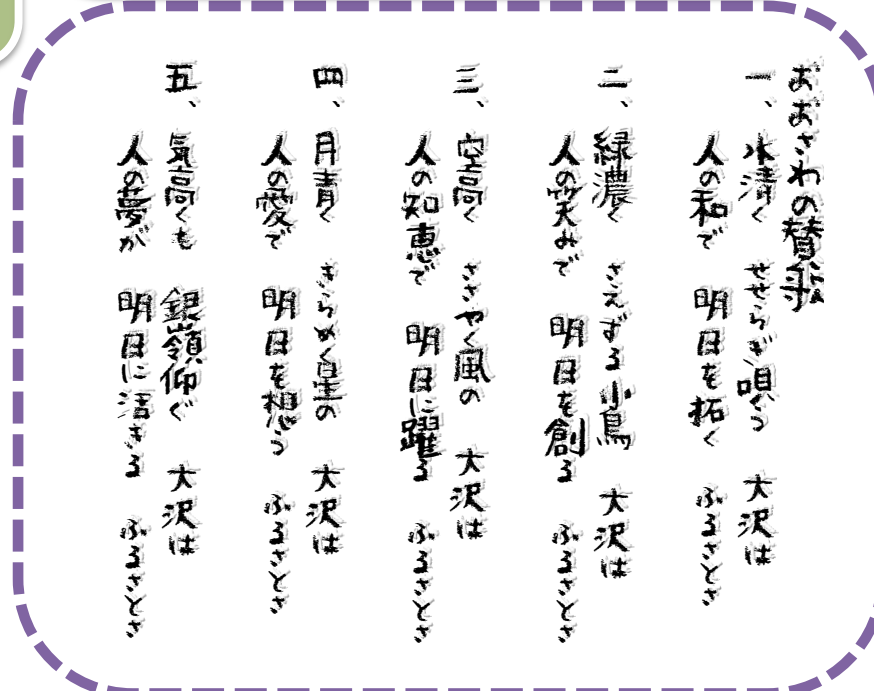 おおさわの賛歌
一、水清く　せせらぎ唄う　大沢は
人の和で　明日を拓く　ふるさとさ
二、緑濃く　さえずる小鳥　大沢は
人の笑みで　明日を創る　ふるさとさ
三、空高く　ささやく風の　大沢は
人の知恵で　明日に躍る　ふるさとさ
四、月青く　きらめく星の　大沢は
人の愛で　明日を想う　ふるさとさ
五、気高くも　銀嶺仰ぐ　大沢は
人の夢が　明日に活きる　ふるさとさ